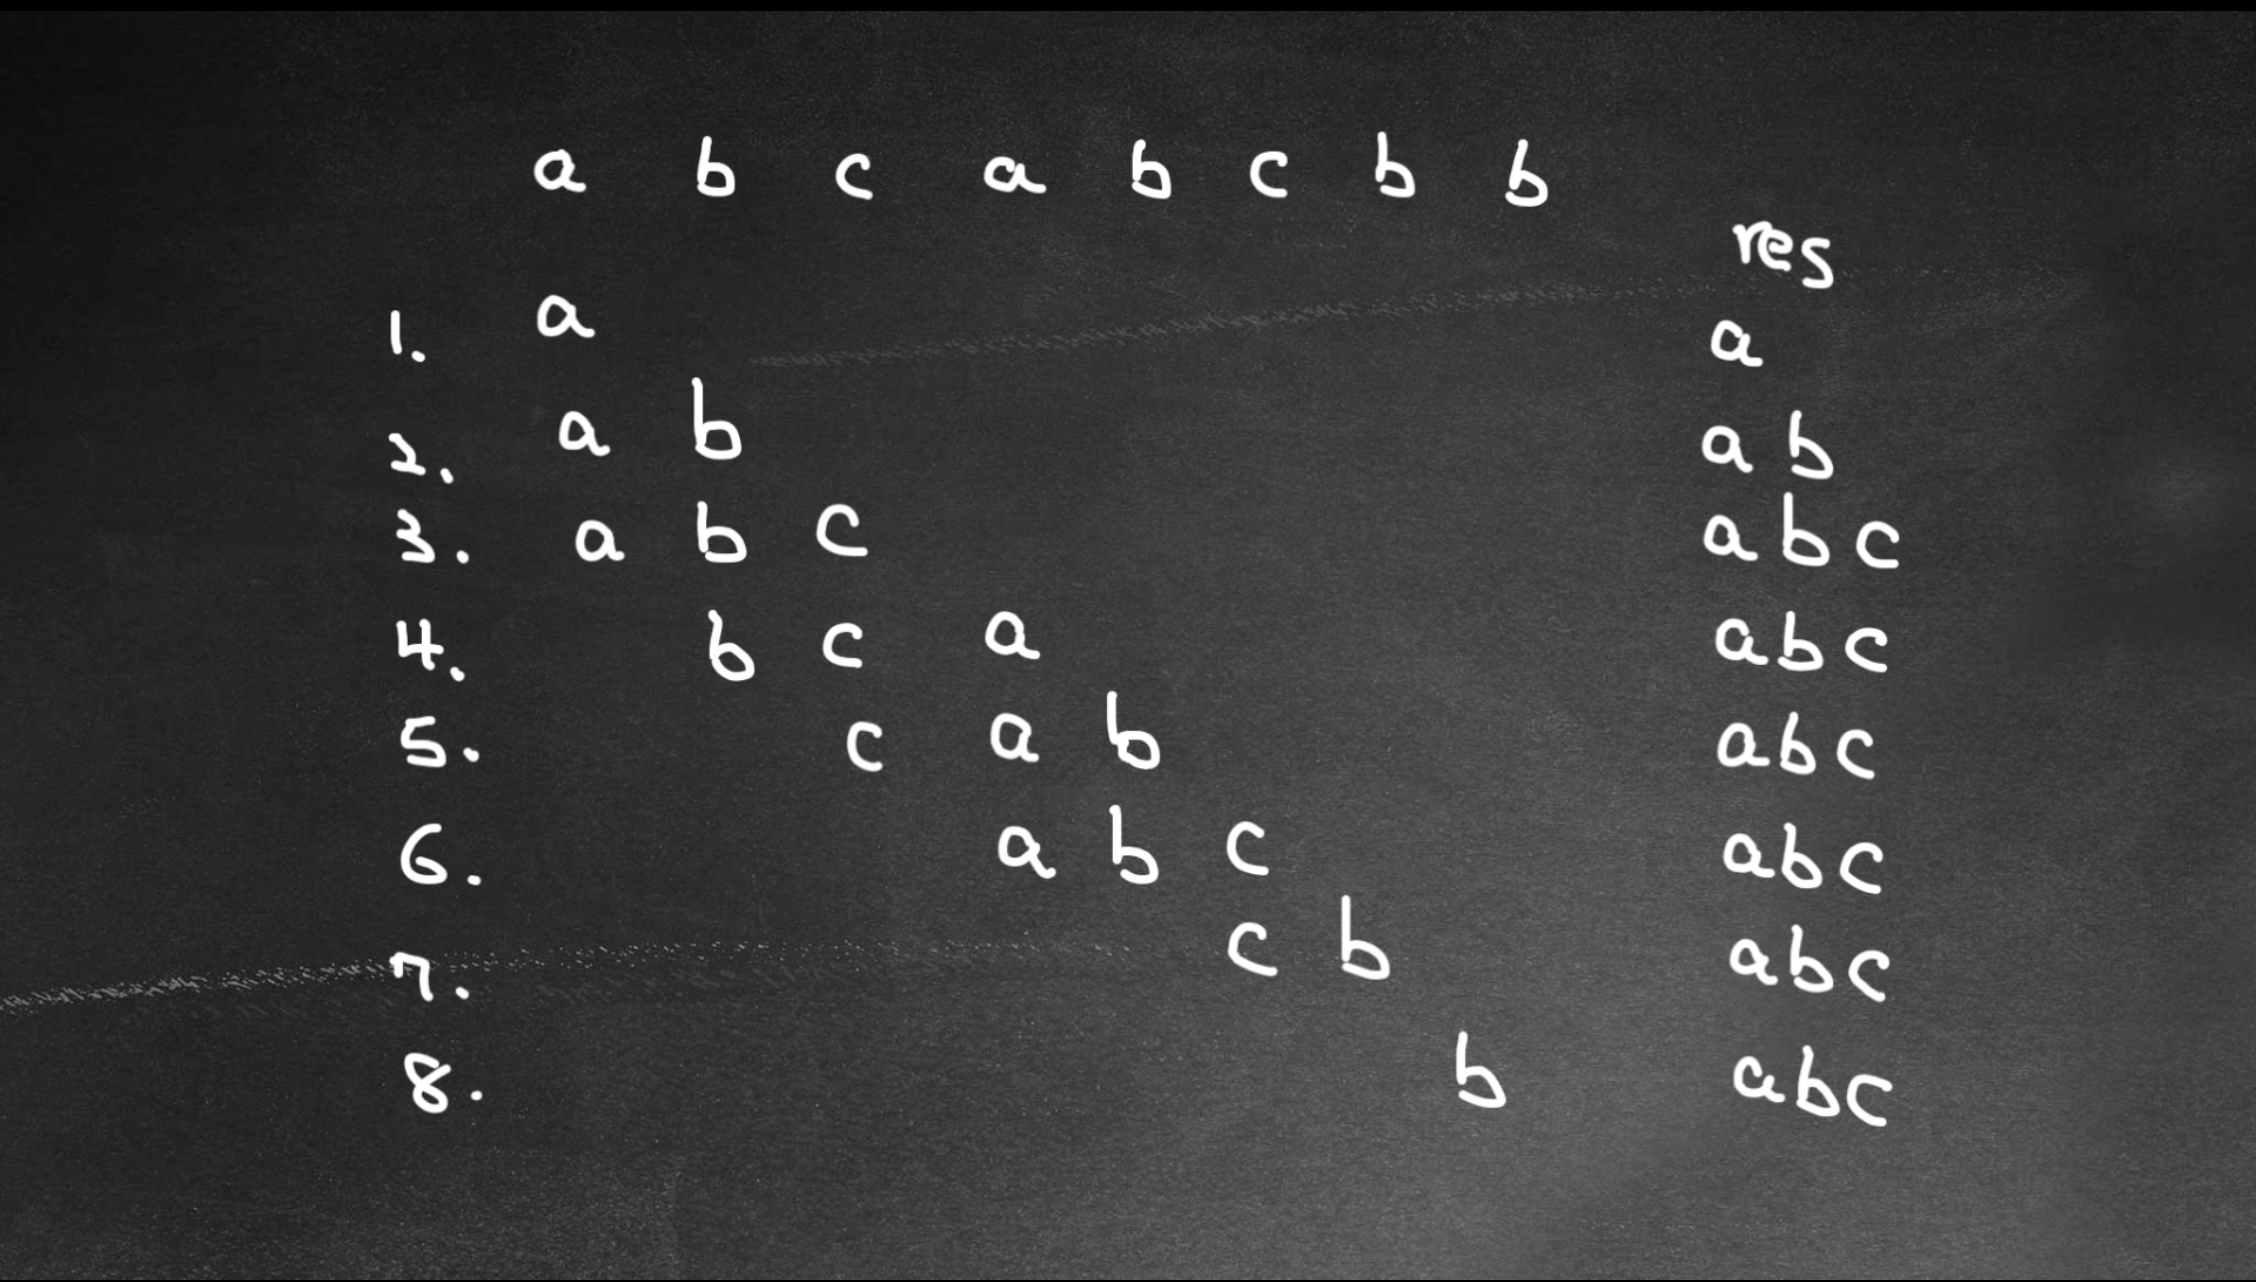 a b c a b c b b
res
1. a a
2. a b a b
3. a b c a b c
4. b c a a b c
5. c a b a b c
6. a b c a b c
7. c b a b c
8. b a b c